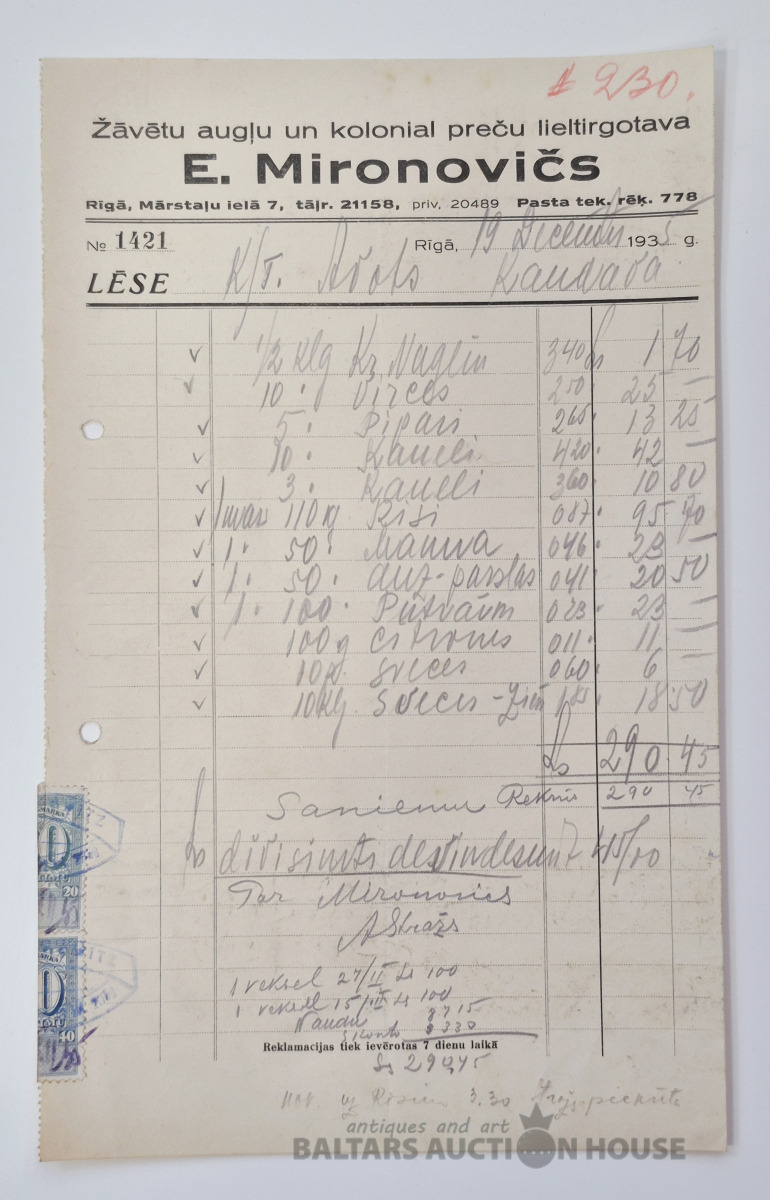 230.
Žāvētu augļu un kolonial preču lieltirgotava
E. Mironovičs
Rīgā, Mārstaļu ielā 7, tāļr. 21158, priv. 20489 Pasta tek. rēķ. 778
№ 1421 Rīgā, 19 Decembr 1935 g.
LĒSE K/T. Avots Kandavā
1/2 klg Kr. Nagliņ 340 Ls 1 70
10 " Virces 250 " 25 —
5 " Pipari 265 " 13 25
10 " Kaneli 420 " 42 —
3 " Kaneli 360 " 10 80
110 kg Rīsi 087 " 95 70
1 " 50 " Manna 046 " 23 —
1 " 50 " auz-pārslas 041 " 20 50
1 " 100 " Putraim 023 " 23 —
100 g citrones 011 " 11 —
10 p. sveces 060 " 6 —
10 klg Sveces - 185 " 18 50
Ls 290 45
Saņemu 290 45
Ls divisimts deviņdesmit 45/100
Par Mironovics
1 veksel 27/II Ls 100
1 veksel 15/III Ls 100
Naudu 8715
Skonto 330
Reklamacijas tiek ievērotas 7 dienu laikā
Ls 290,45
3.30
20
40
antiques and art
BALTARS AUCTION HOUSE